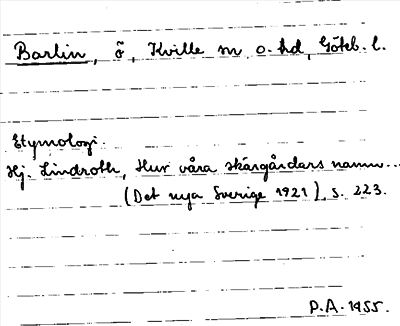 Barlin, õ, Kville sn o. hd, Götb. l.
Etymologi.
Hj. Lindroth, Hur våra skärgårdars namn...
(Det nya Sverige 1921), s. 223.
P.A. 1955.